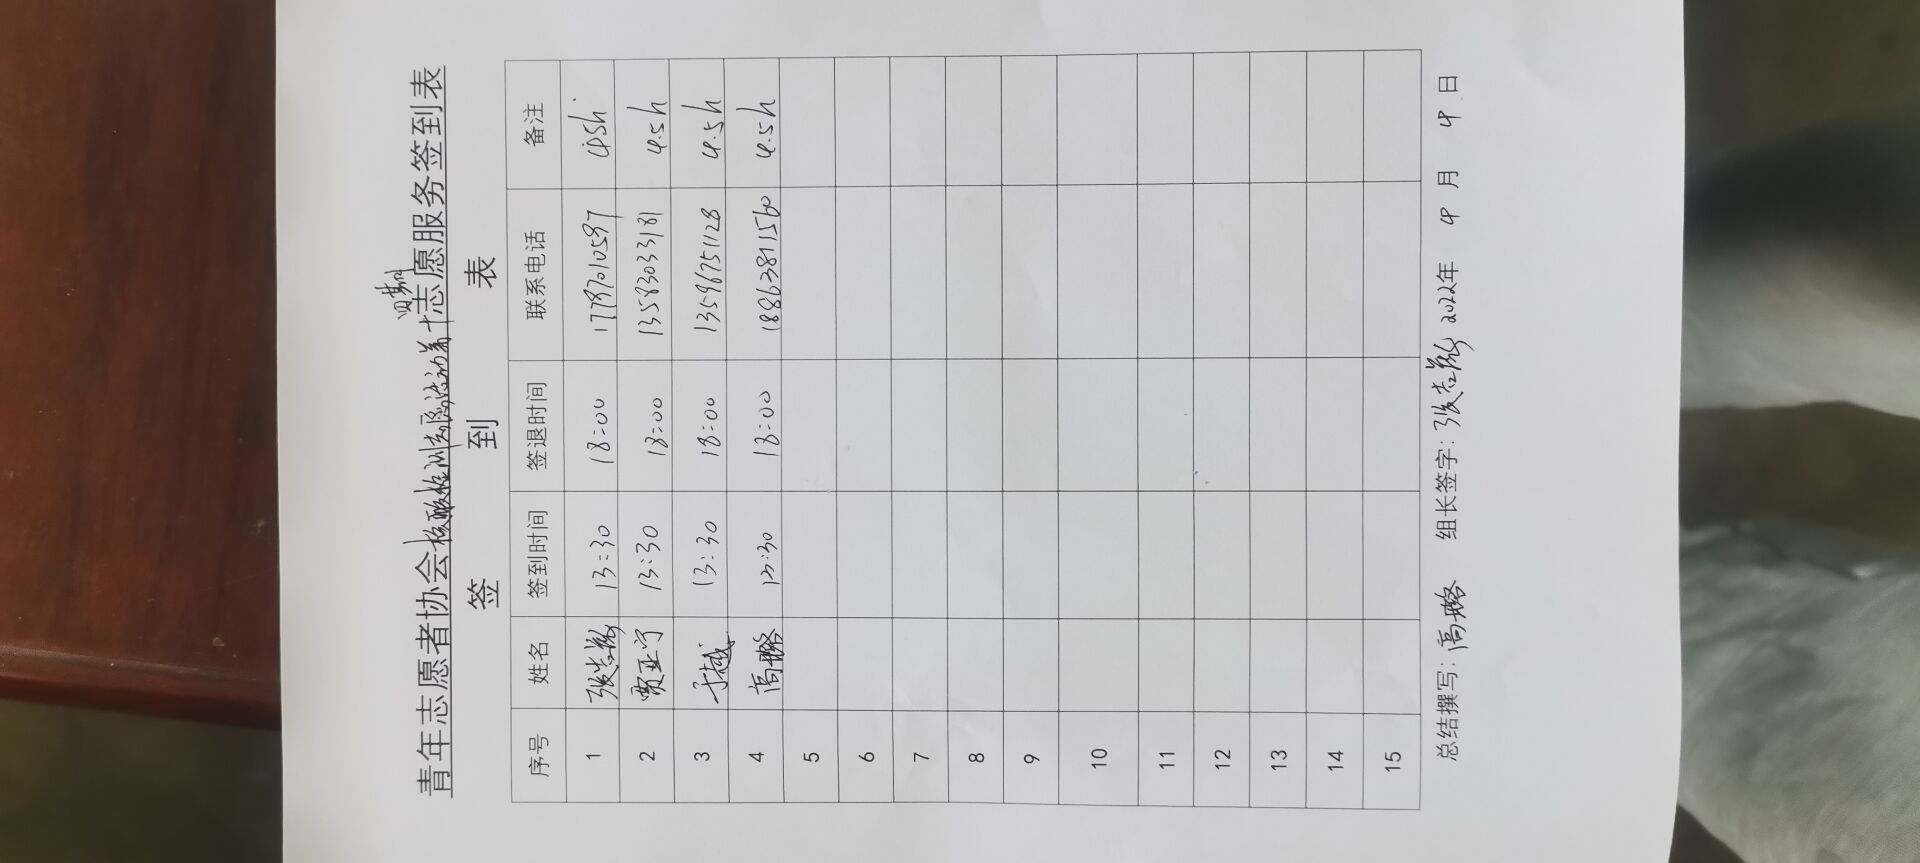 青年志愿者协会核酸检测志愿活动第十四期志愿服务签到表
签 到 表
序号 姓名 签到时间 签退时间 联系电话 备注
1 13:30 18:00 17787010597 4.5h
2 贾亚宁 13:30 18:00 13583033181 4.5h
3 于越 13:30 18:00 13596751128 4.5h
4 高璐 13:30 18:00 18863811560 4.5h
5
6
7
8
9
10
11
12
13
14
15
总结撰写：高璐 组长签字： 2022年 4 月 4 日